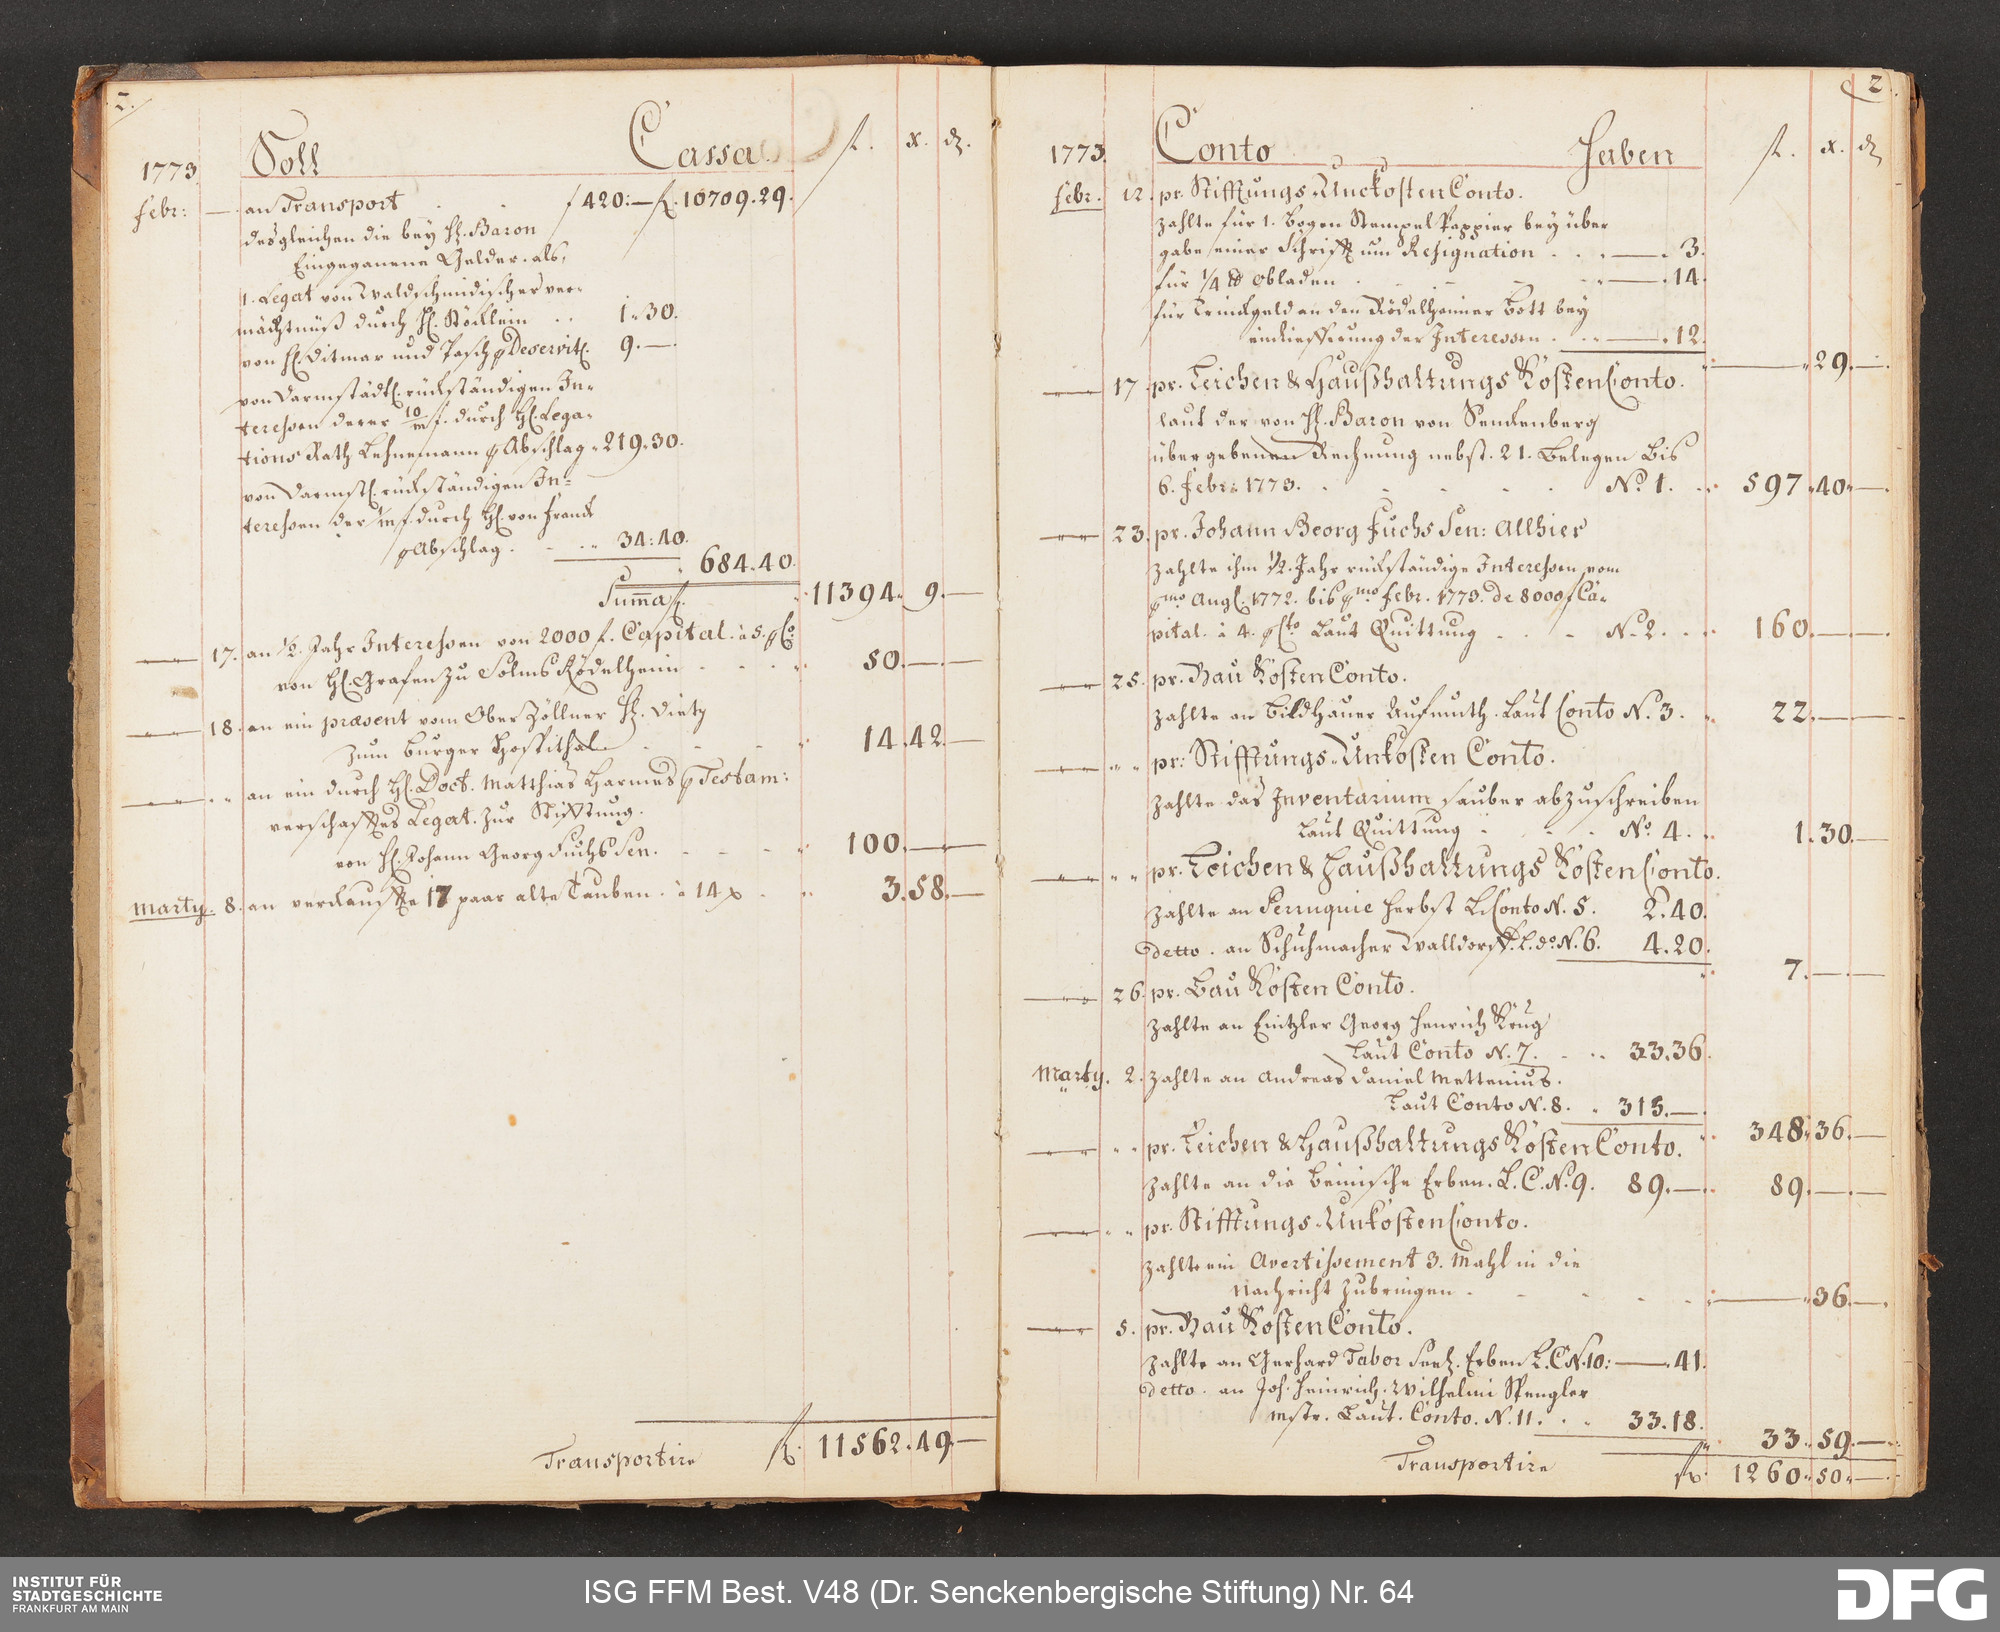 2.
1773. Soll Cassa. fl. x. d.
Febr: an Transport f 420:— fl. 10709.29.
desgleichen die bey H. Baron
Eingegangene Gelder. als,
1. Legat von Waldschmidischer ver-
mächtnüß durch H. Röcklein 1.30.
von H. Ditmar und Pasch p Deservit. 9.—.
von Darmstädt. rückständigen In-
teressen derer 10/m f. durch H. Lega-
tions Rath Lehnemann p Abschlag 219.30.
von Darmst. rückständigen In-
teressen der /m f. durch H. von Franck
p Abschlag. 34:40.
684.40.
Summa fl. 11394. 9.—
17. an 1/2. Jahr Interessen von 2000 f. Capital. à 5. p Co.
von H. Grafen zu Solms Rödelheim 50.—.—
18. an ein præsent vom Ober Zöllner H. Dietz
zum Burger Hospithal 14.42.—
an ein durch H. Doct. Matthias Harmes p Testam:
verschafftes Legat. zur Stifftung.
von H. Johann Georg Fuchs Sen. 100.—.—
Marty. 8. an verkauffte 17 paar alte Tauben. à 14 x 3.58.—
Transportire fl. 11562.49.—
2.
1773. Conto Haben fl. x. d
Febr. 12. pr. Stifftungs-Unckosten Conto.
zahlte für 1. Bogen Stempel Pappier bey über
gabe einer Schrifft um Resignation —.3.
für 1/4 lb Obladen —.14.
für Trinckgeld an den Rödelheimer Bott bey
einliefferung der Interessen —.12.
—.29.—
17. pr. Leichen & Haußhaltungs Kosten Conto.
laut der von H. Baron von Senckenberg
übergebenen Rechnung nebst. 21. Belegen bis
6. Febr: 1773. No. 1. 597.40.—
23. pr. Johann Georg Fuchs Sen: Allhier
zahlte ihm 1/2. Jahr rückständige Interessen vom
pmo. Aug. 1772. bis pmo. Febr. 1773. de 8000 f Ca-
pital. à 4. p Cto Laut Quittung N. 2. 160.—.—
25. pr. Bau Kosten Conto.
zahlte an Bildhauer Aufmuth. Laut Conto N. 3. 22.—.—
pr: Stifftungs-Unkosten Conto.
zahlte das Inventarium sauber abzuschreiben
Laut Quittung No. 4. 1.30.—
pr. Leichen & Haußhaltungs Kosten Conto.
zahlte an Perruquie Herbst L. Conto N. 5. 2.40.
detto. an Schuhmacher Walldorff. L. do. N. 6. 4.20.
7.—.—
26. pr. Bau Kosten Conto.
zahlte an Eintzler Georg Henrich Krug
Laut Conto N. 7. 33.36.
Marty. 2. zahlte an Andreas Daniel Mettenius.
Laut Conto N. 8. 315.—.
348.36.—
pr. Leichen & Haußhaltungs Kosten Conto.
zahlte an die Beinische Erben. L. C. N. 9. 89.— 89.—.—
pr. Stifftungs-Unkosten Conto.
zahlte ein Avertissement 3. Mahl in die
Nachricht zubringen —.36.—
5. pr. Bau Kosten Conto.
zahlte an Gerhard Tabor Seel. Erben L. C N. 10: —.41.
detto. an Joh. Heinrich. Wilhelmi Spengler
Mstr. Laut. Conto. N. 11. 33.18.
33.59.—
Transportire fl. 1260.50.—
INSTITUT FÜR
STADTGESCHICHTE
FRANKFURT AM MAIN
ISG FFM Best. V48 (Dr. Senckenbergische Stiftung) Nr. 64
DFG